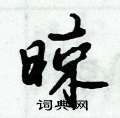 晾
词典网